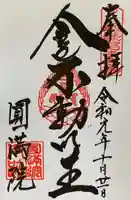 奉拝
令和元年十月廿日
金色不動明王
圓満院